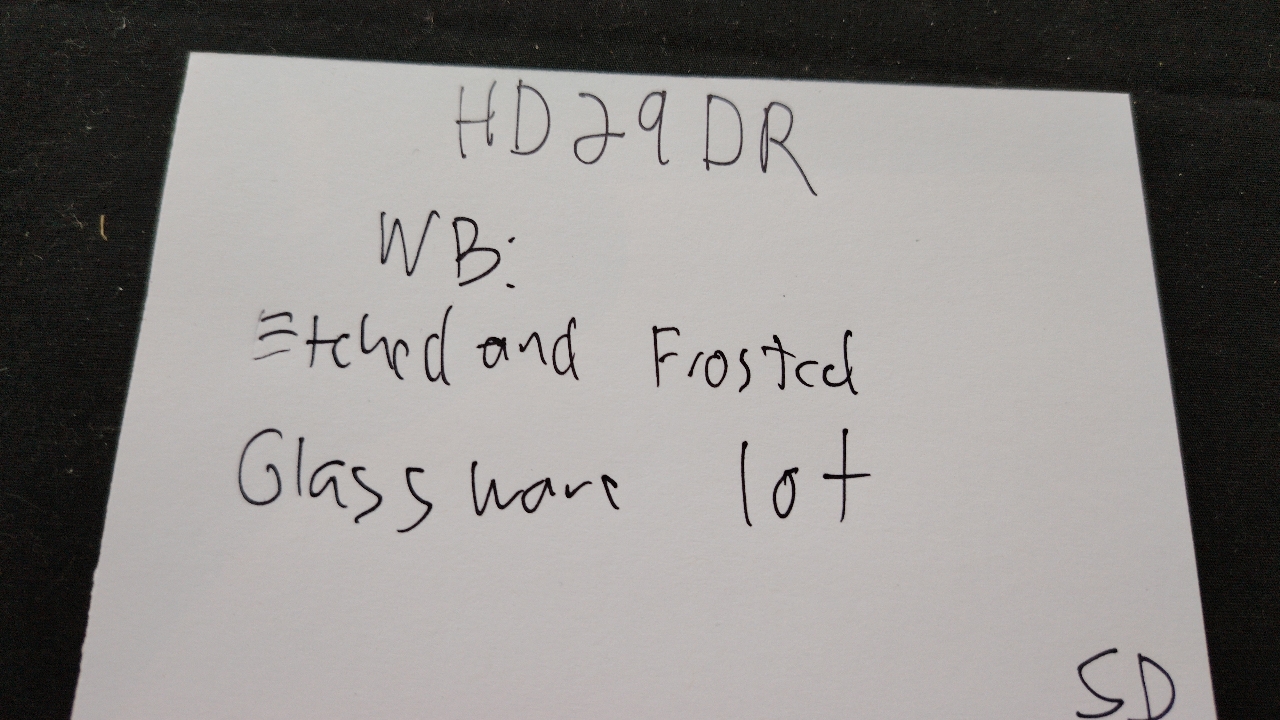 HD29DR
WB:
Etched and Frosted
Glassware lot
SD